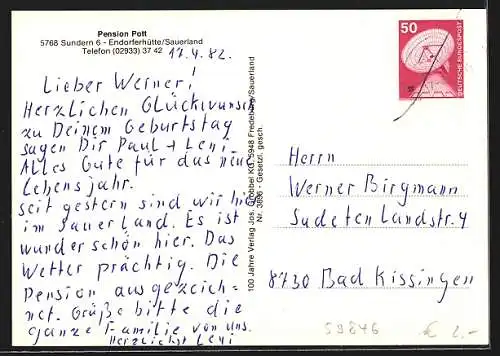 Pension Pott
5768 Sundern 6 - Endorferhütte/Sauerland
Telefon (02933) 37 42
17.4.82.
Lieber Werner!
Herzlichen Glückwunsch
zu Deinem Geburtstag
sagen Dir Paul + Leni.
Alles Gute für das neue
Lebensjahr.
seit gestern sind wir hier
im Sauerland. Es ist
wunderschön hier. Das
Wetter prächtig. Die
Pension ausgezeich-
net. Grüße bitte die
ganze Familie von uns.
Herzlichst Leni
100 Jahre Verlag Jos. Grobbel KG 5948 Fredeburg/Sauerland
Nr. 3896 - Gesetzl. gesch.
50
DEUTSCHE BUNDESPOST
Herrn
Werner Birgmann
Sudetenlandstr. 4
8730 Bad Kissingen
59846
€ 2,-